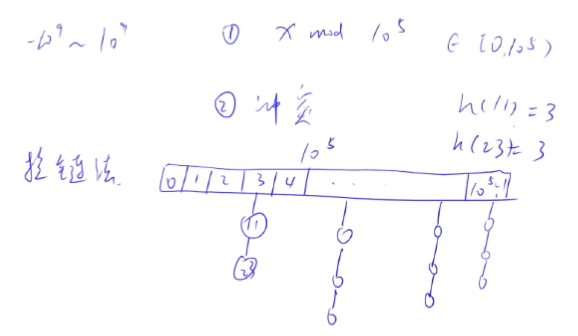 -10⁹ ~ 10⁹ ① x mod 10⁵ ∈ [0, 10⁵)
② 冲突 h(11) = 3
10⁵ h(23) = 3
拉链法 0 1 2 3 4 ...... 10⁵-1
11
23